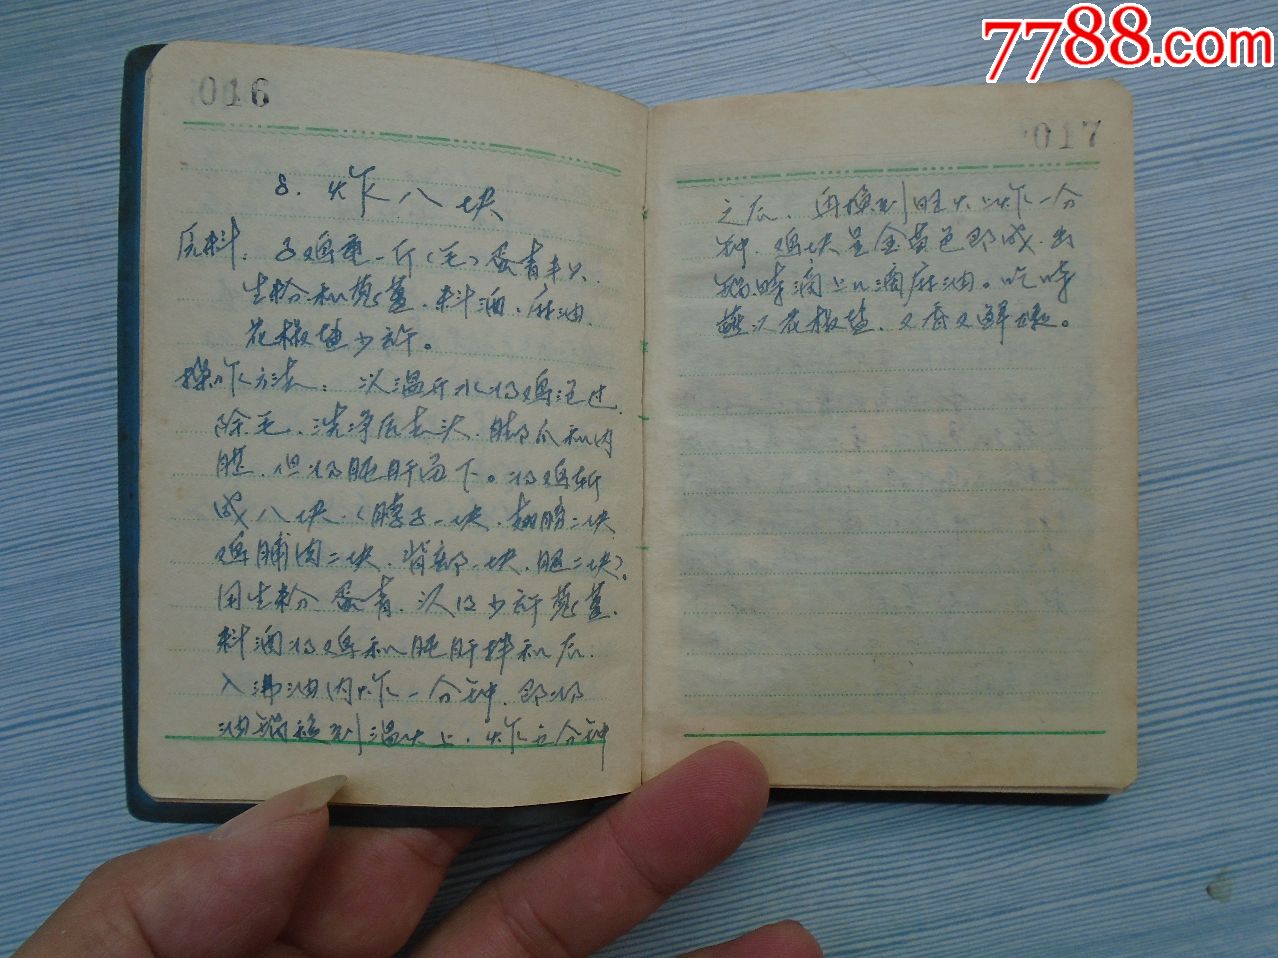 7788.com
016
8. 炸八块
原料：子鸡重一斤（毛）蛋青半只、
生粉和葱姜、料酒、麻油、
花椒盐少许。
操作方法：以温开水将鸡泡过
除毛、洗净后去头、脚爪和内
脏、但将肫肝留下。将鸡斩
成八块（脖子一块、翅膀二块
鸡脯肉二块、背部一块、腿二块）。
用生粉、蛋青、以及少许葱姜、
料酒将鸡和肫肝拌和后、
入沸油内炸一分钟、即将
油锅移到温火上、炸五分钟
017
之后、再换到旺火上炸一分
钟、鸡块呈金黄色即成、出
锅时滴上几滴麻油。吃时
蘸以花椒盐、又香又鲜嫩。